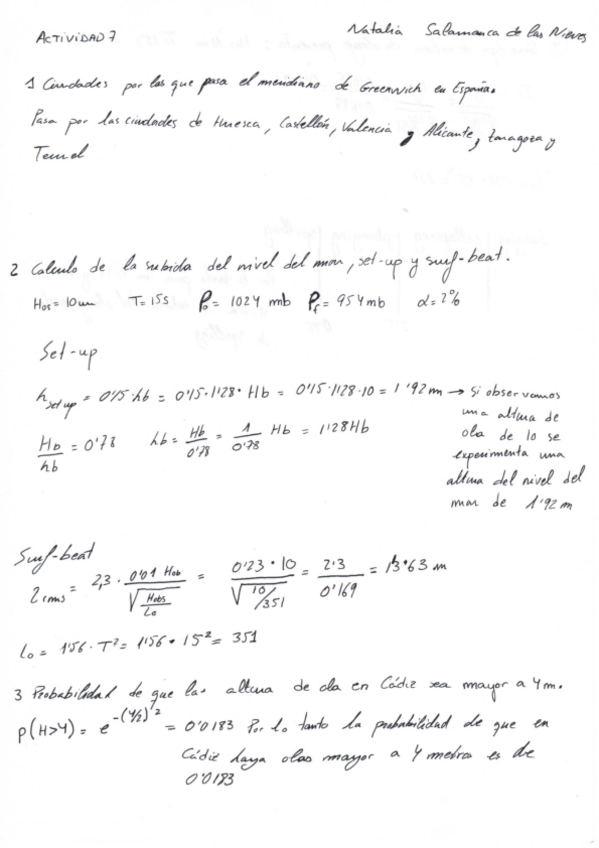 Natalia Salamanca de las Nieves
ACTIVIDAD 7
1 Ciudades por las que pasa el meridiano de Greenwich en España.
Pasa por las ciudades de Huesca, Castellón, Valencia y Alicante, Zaragoza y
Teruel
2 Calculo de la subida del nivel del mar, set-up y surf-beat.
Hos = 10 m T = 15s Po = 1024 mb Pf = 954 mb α = 2%
Set-up
h set up = 0'15 · hb = 0'15 · 1'28 · Hb = 0'15 · 1'28 · 10 = 1'92 m → Si observamos
una altura de
ola de 10 se
experimenta una
altura del nivel del
mar de 1'92 m
Hb/hb = 0'78 hb = Hb/0'78 = 1/0'78 Hb = 1'28 Hb
Surf-beat
2,3 · 0'01 Hob / √(Hobs/Lo) = 0'23 · 10 / √(10/351) = 2'3 / 0'169 = 13'63 m
Lo = 1'56 · T² = 1'56 · 15² = 351
3 Probabilidad de que la altura de ola en Cádiz sea mayor a 4m.
p(H>4) = = 0'0183 Por lo tanto la probabilidad de que en
Cádiz haya olas mayor a 4 metros es de
0'0183